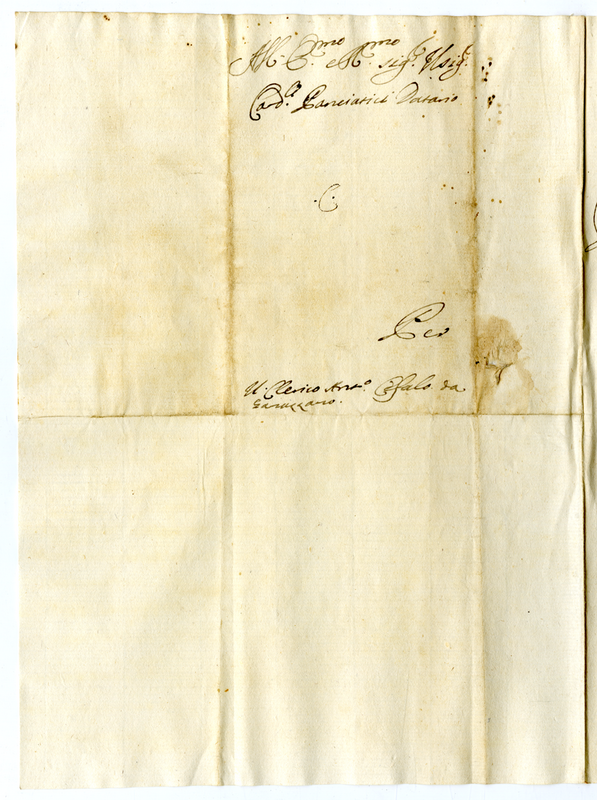 All. E.mo e R.mo sig.r il sig.r
Card.le Panciatici Datario
.C.
Per
Il Clerico Ant.o Cefalo da